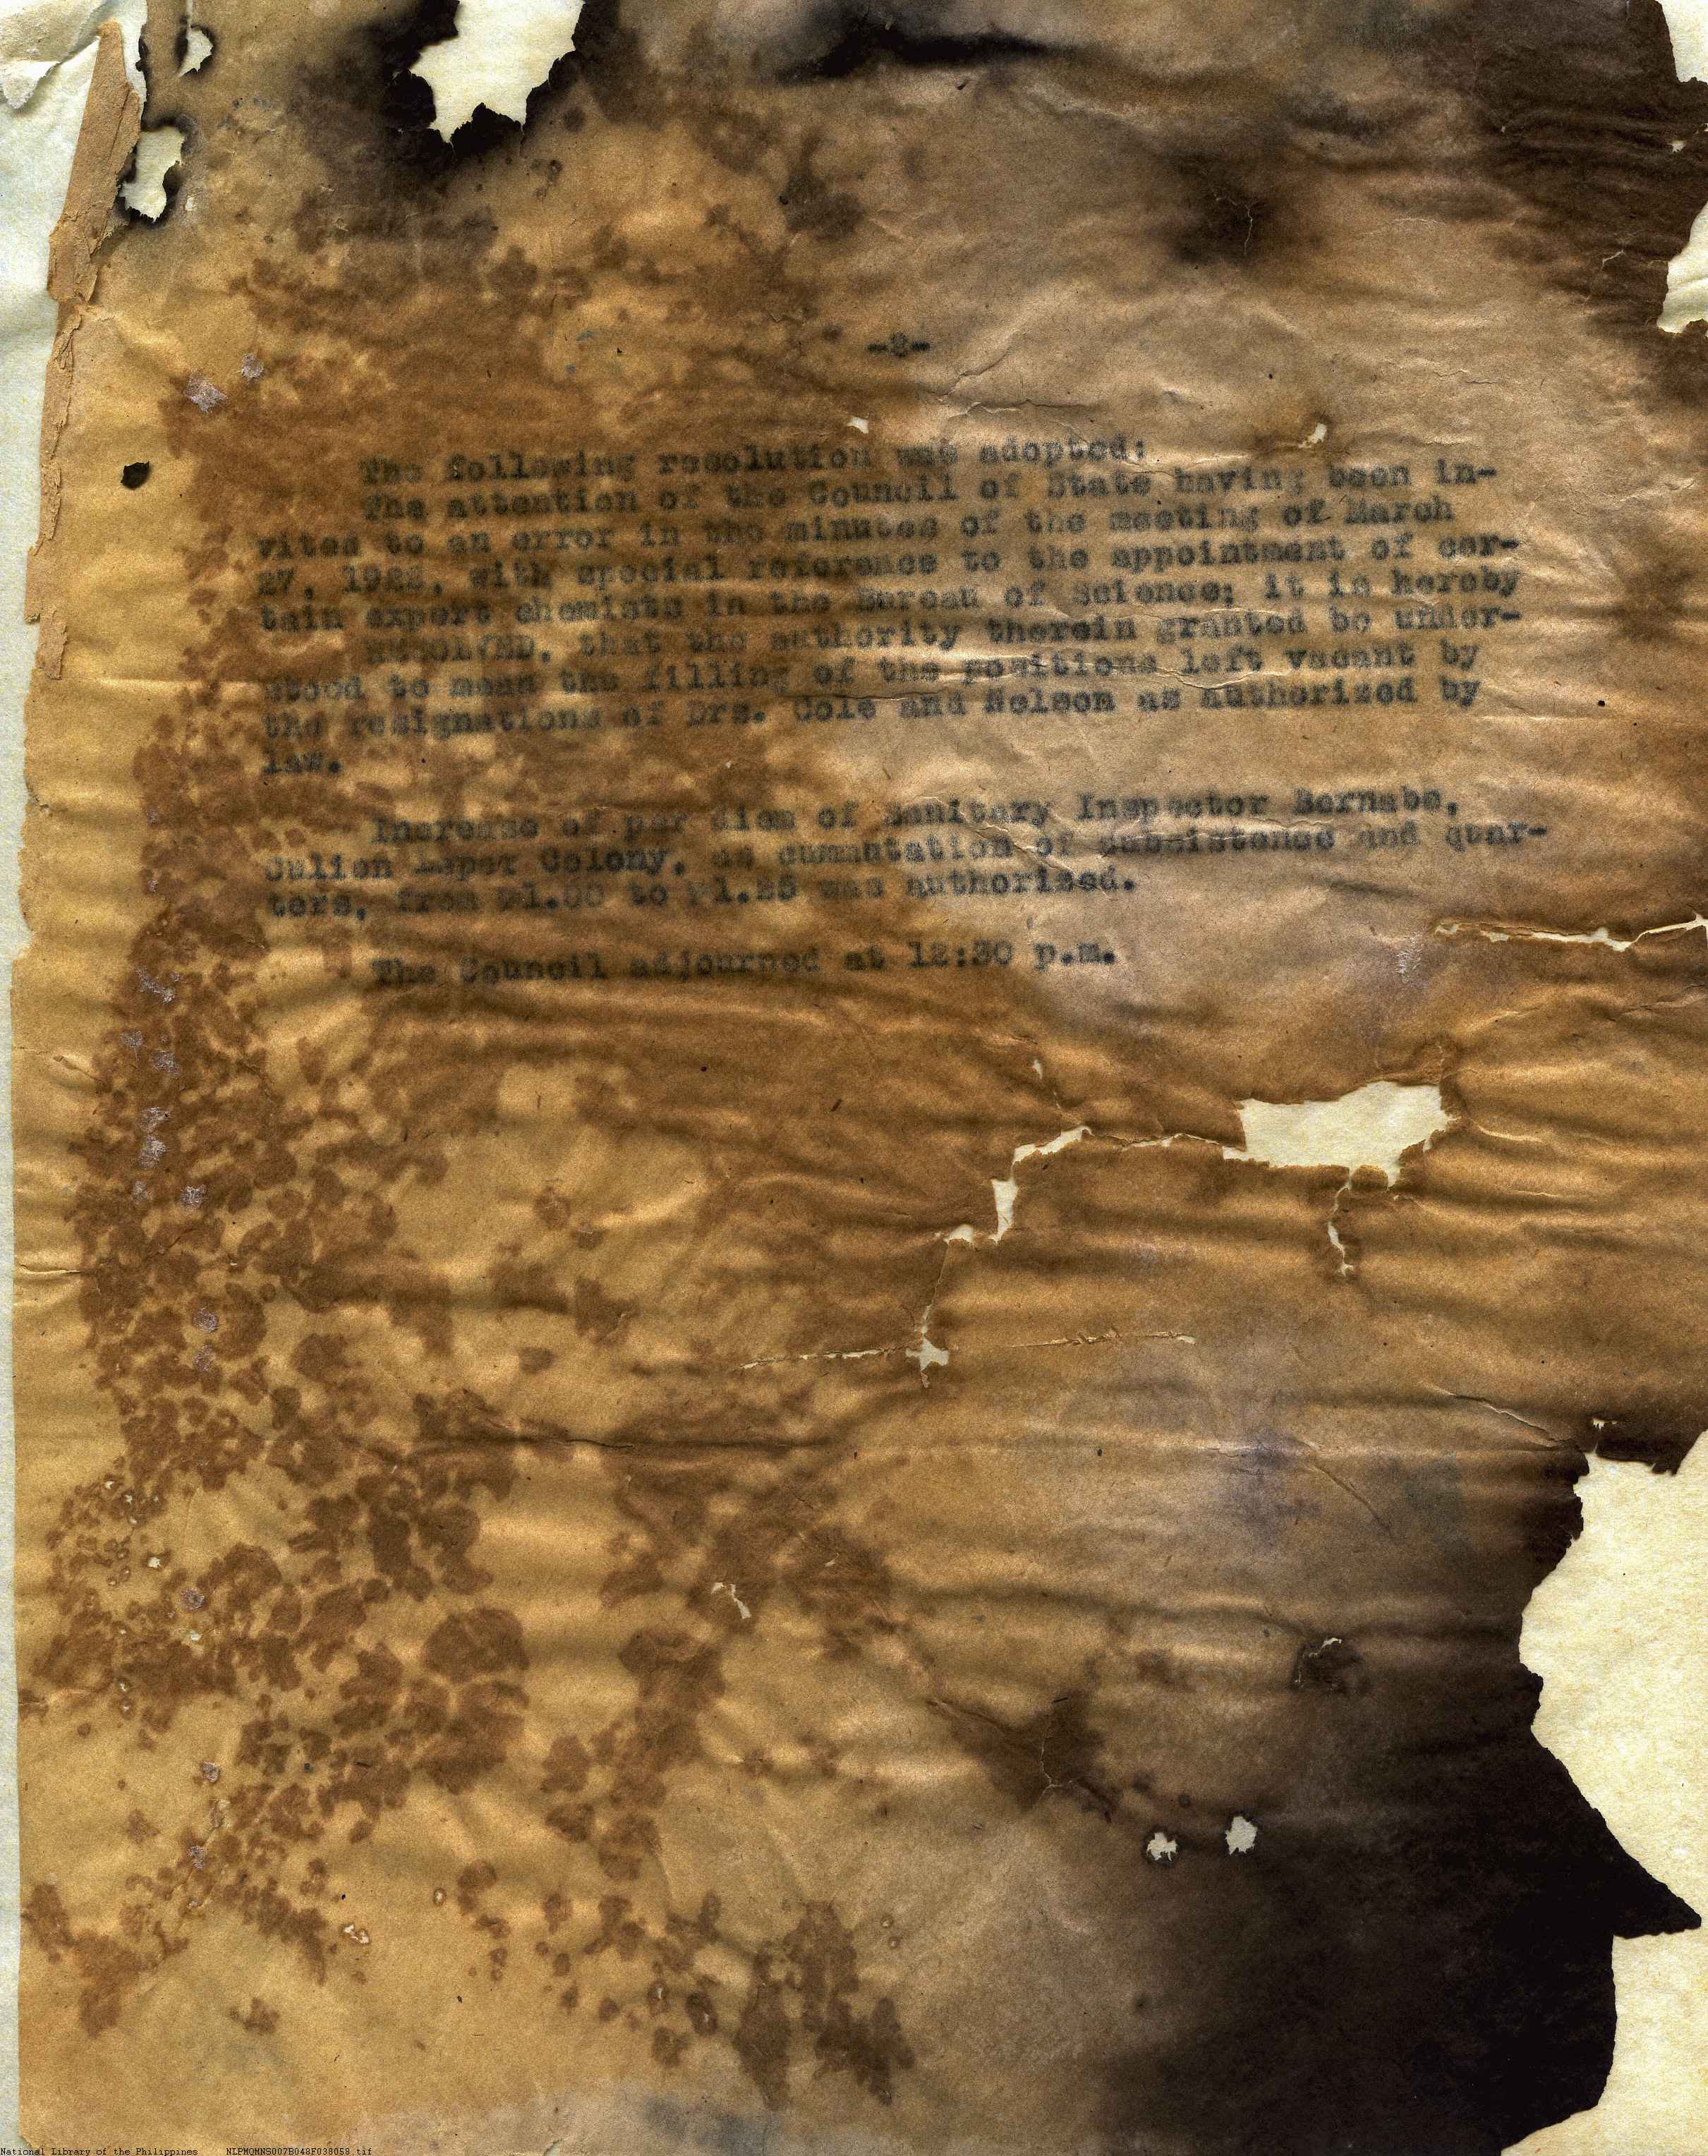 The following resolution was adopted:
The attention of the Council of State having been in-
vited to an error in the minutes of the meeting of March
27, with special reference to the appointment of cer-
tain expert chemists in the Bureau of Science; it is hereby
RESOLVED, that the authority therein granted be under-
stood to mean the filling of the positions left vacant by
the resignations of Drs. Cole and Nelson as authorized by
law.
Increase of per diem of Sanitary Inspector Bernabe,
Culion Leper Colony, as commutation of subsistence and quar-
ters, from ₱1.00 to ₱1.25 was authorized.
The Council adjourned at 12:30 p.m.
National Library of the Philippines NLPMQMNS007B048F038058.tif